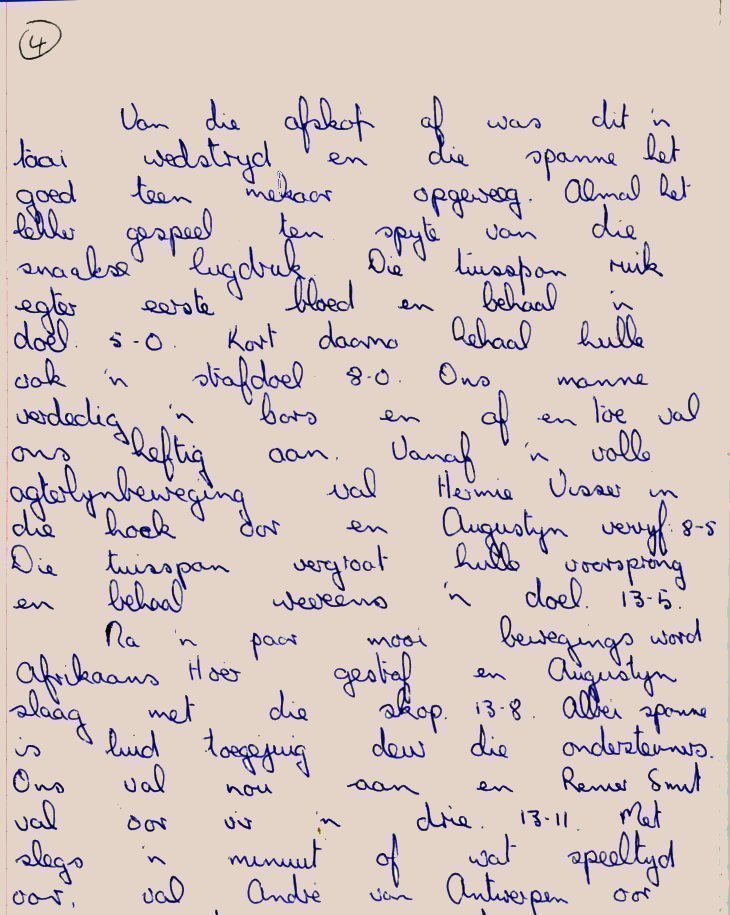 4
Van die afskop af was dit 'n
taai wedstryd en die spanne het
goed teen mekaar opgeweeg. Almal het
lekker gespeel ten spyte van die
snaakse lugdruk. Die tuisspan ruik
egter eerste bloed en behaal 'n
doel. 5-0. Kort daarna behaal hulle
ook 'n strafdoel 8-0. Ons manne
verdedig 'n bars en af en toe val
ons heftig aan. Vanaf 'n volle
agterlynbeweging val Hermie Visser in
die hoek oor en Augustyn verwyf. 8-5
Die tuisspan vergroot hulle voorsprong
en behaal weereens 'n doel. 13-5.
Na 'n paar mooi bewegings word
Afrikaans Hoër gestraf en Augustyn
slaag met die skop. 13-8. Albei spanne
is luid toegejuig deur die ondersteuners.
Ons val nou aan en Renier Smit
val oor vir 'n drie. 13-11. Met
slegs 'n minuut of wat speeltyd
oor, val André van Antwerpen oor